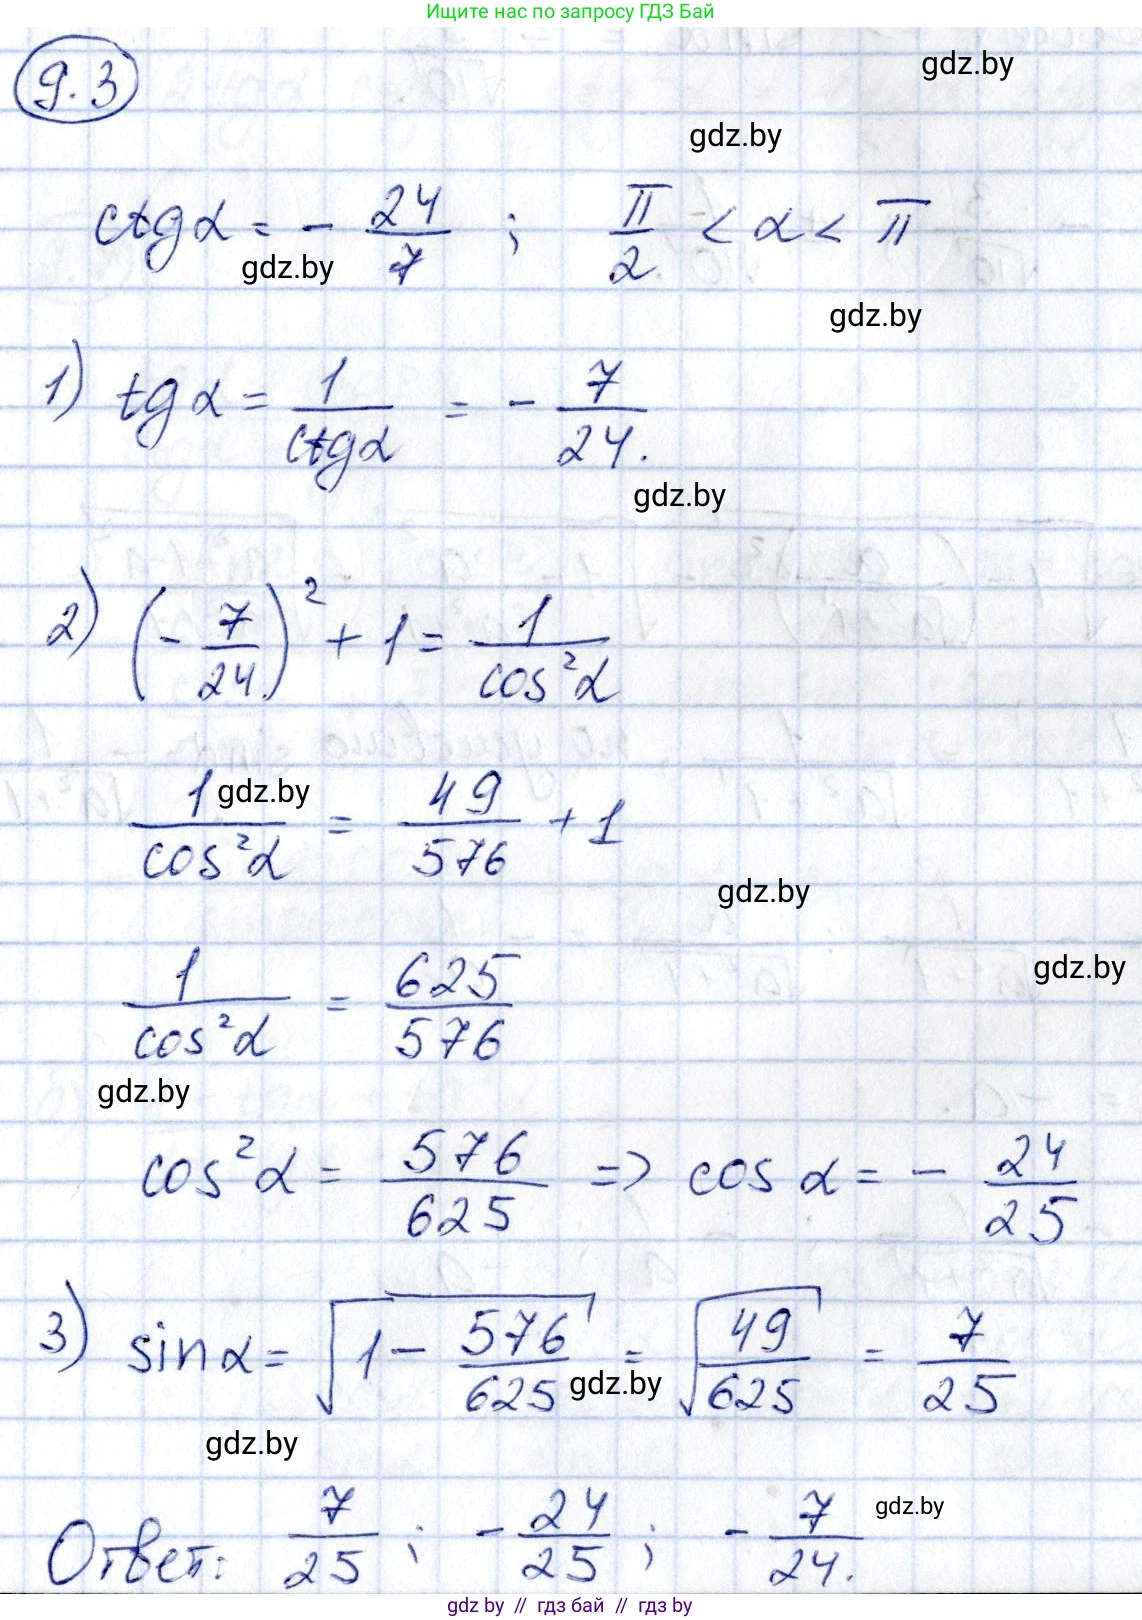 Ищите нас по запросу ГДЗ Бай
9.3
gdz.by
gdz.by
ctgα = - 24/7 ; π/2 < α < π
gdz.by
gdz.by
1) tgα = 1/ctgα = - 7/24.
gdz.by
2) (- 7/24)² + 1 = 1/cos²α
1/cos²α = 49/576 + 1
gdz.by
gdz.by
1/cos²α = 625/576
gdz.by
gdz.by
cos²α = 576/625 => cos α = - 24/25
3) sinα = √(1 - 576/625) = √(49/625) = 7/25
gdz.by
gdz.by
Ответ: 7/25 ; - 24/25 ; - 7/24.
gdz.by
gdz.by // гдз бай // гдз by